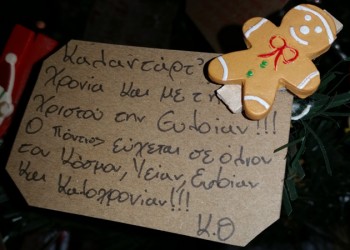 Καλαντάρτ'
Χρονία και με τη
Χριστού την Ευλοΐαν!!!
Ο Πόντιος εύχεται σε όλιον
τον Κόσμο, Υείαν, Ευλοΐαν
και Καλοχρονίαν!!!
Κ.Θ